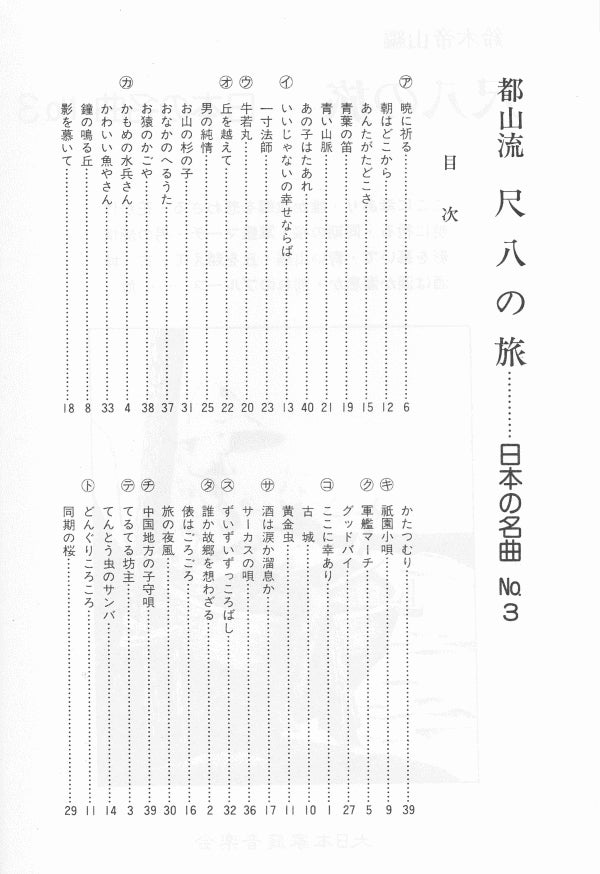 都山流 尺八の旅………日本の名曲 No.3
目次
㋐ 暁に祈る 6
朝はどこから 12
あんたがたどこさ 15
青葉の笛 19
青い山脈 21
あの子はたあれ 40
㋑ いいじゃないの幸せならば 13
一寸法師 23
㋒ 牛若丸 20
㋔ 丘を越えて 22
男の純情 25
お山の杉の子 31
おなかのへるうた 37
お猿のかごや 38
㋕ かもめの水兵さん 4
かわいい魚やさん 33
鐘の鳴る丘 8
影を慕いて 18
かたつむり 39
㋖ 祇園小唄 9
㋗ 軍艦マーチ 5
グッドバイ 27
㋙ ここに幸あり 1
古城 10
黄金虫 11
㋚ 酒は涙か溜息か 17
サーカスの唄 36
㋜ ずいずいずっころばし 32
㋟ 誰か故郷を想わざる 2
俵はごろごろ 16
旅の夜風 30
㋠ 中国地方の子守唄 39
㋢ てるてる坊主 3
てんとう虫のサンバ 14
㋣ どんぐりころころ 11
同期の桜 29